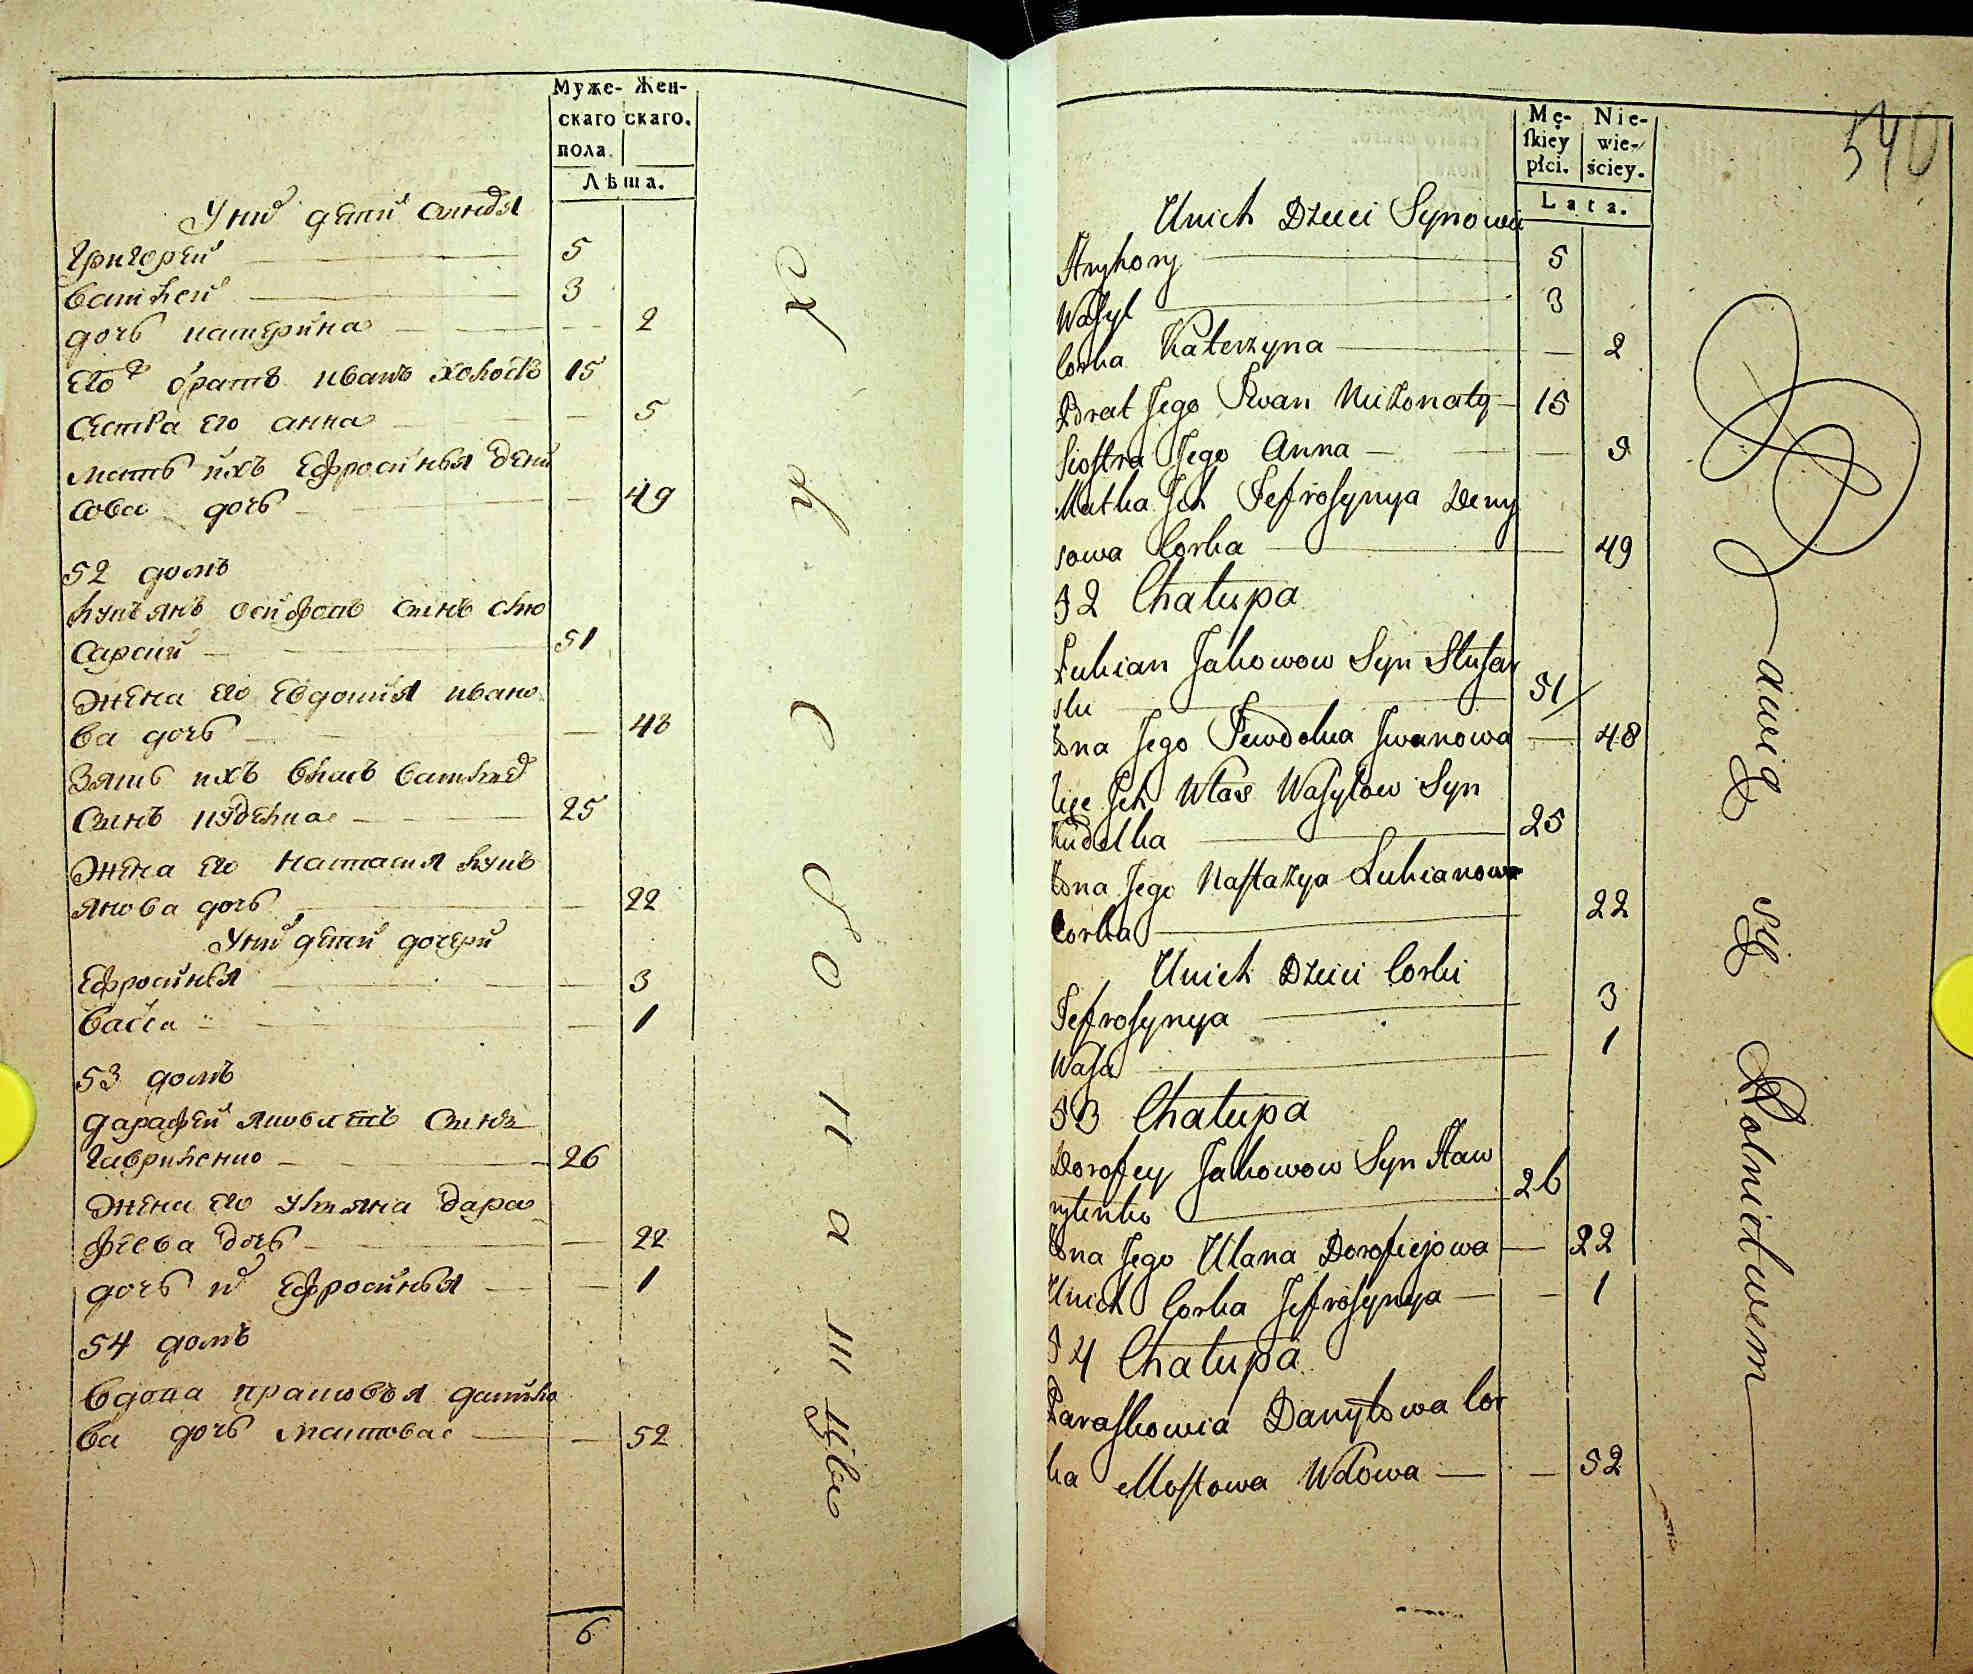 Муже-
скаго
пола.
Жен-
скаго.
Лѣта.
У них дѣти сынвя
Григорей 5
Василей 3
дочь катерина 2
его братъ иванъ холостъ 15
сестра его анна 5
мать ихъ Ефросинья дени
сова дочь 49
52 домъ
лукьянъ осифовъ сынъ слю
сарский 51
жена его Евдокия ивано
ва дочь 48
Зять ихъ власъ василев
сынъ куделка 25
жена его настасия лукь
янова дочь 22
У них дѣти дочери
Ефросинья 3
васса 1
53 домъ
дарафей яковлевъ сынъ
гавриленко 26
жена его ульяна дара
феева дочь 22
дочь их Ефросинья 1
54 домъ
вдова прасковья данило
ва дочь мастовае 52
6
Мę-
ſkiey
płci.
Nie-
wie-
ściey.
Lata.
540
Unich Dzieci Synowie
Hryhory 5
Wasyl 3
Corka Katerzyna 2
Brat Jego Iwan Niżonaty 15
Siostra Jego Anna 9
Matka Ich Jefrosynya Deny
sowa Corka 49
52 Chałupa
Łukian Jakowow Syn Slusar
ski 51
Żona Jego Jewdokia Iwanowa 48
Zięć Ich Włass Wasylow Syn
Kudełka 25
Żona Jego Nastazya Łukianowa
Corka 22
Unich Dzieci Corki
Jefrosynya 3
Wasa 1
53 Chałupa
Dorofey Jakowow Syn Haw
rylenko 26
Żona Jego Ulana Dorofiejowa 22
Unich Corka Jefrosynya 1
54 Chałupa
Paraskowia Danyłowa Cor
ka Mostowa Wdowa 52